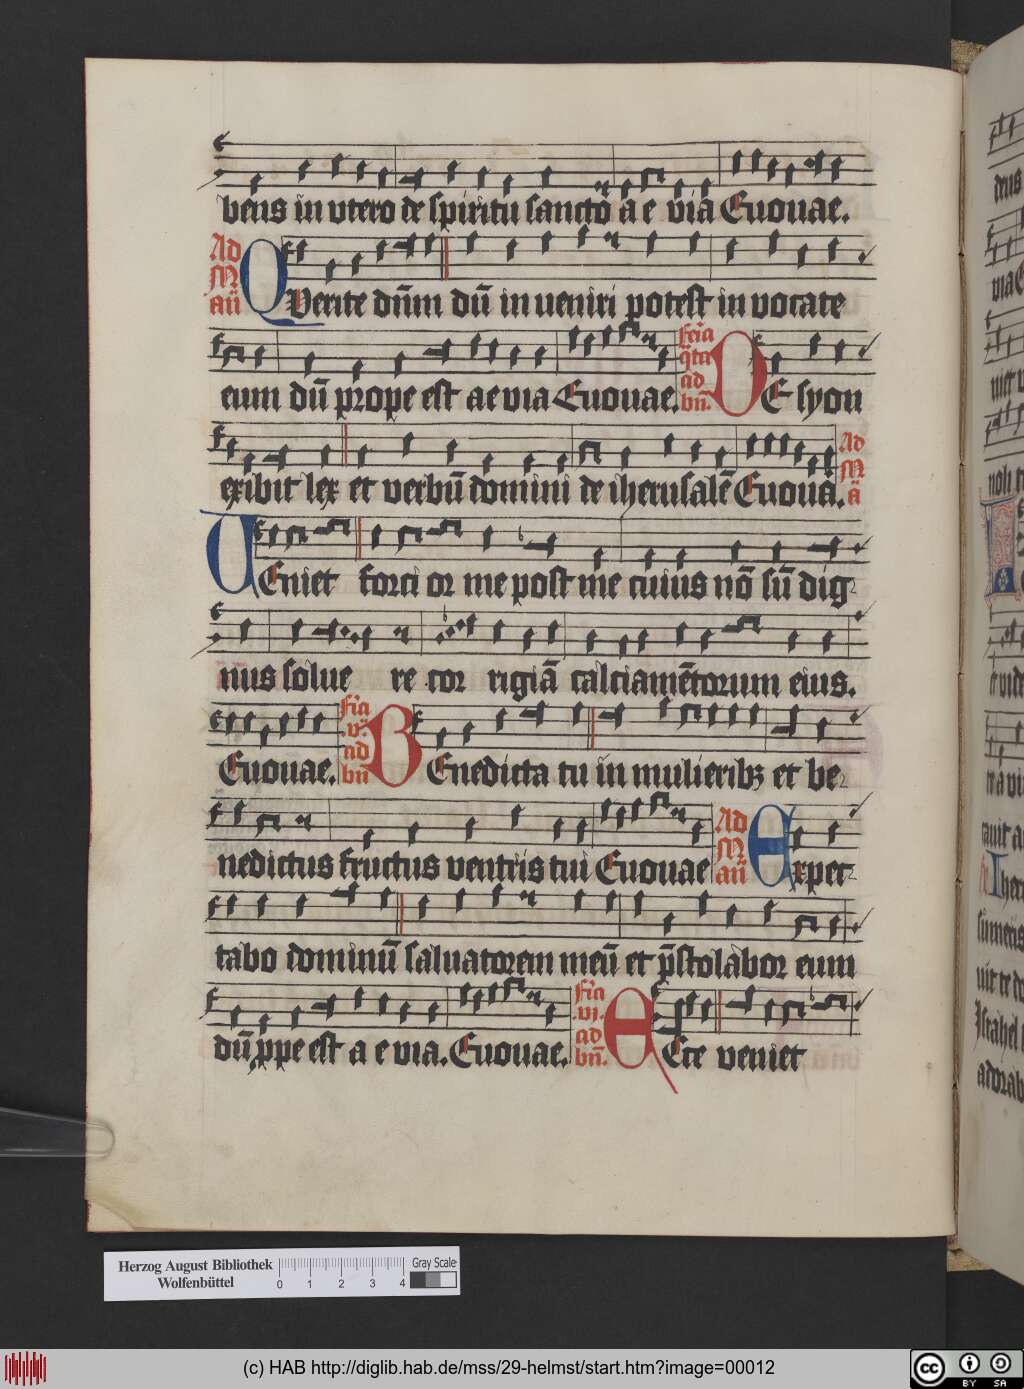 bens in vtero de spiritu sancto a e via Euouae.
Ad
M
an̄
QVerite dn̄m dū in ueniri potest in vocate
eum dū prope est ae via Euouae.
fr̄ia
q̄ta
ad
bn̄.
DE syon
exibit lex et verbū domini de iherusalē Euoua.
Ad
M
ā
VEniet forci or me post me cuius nō sū dig
nus solue re cor rigiā calciamētorum eius.
Euouae.
fīa
.v.
ad
bn̄
BEnedicta tu in mulieribꝫ et be
nedictus fructus ventris tui Euouae
Ad
M
an̄
Expec
tabo dominū saluatorem meū et p̄stolabor eum
dū ꝓpe est a e via. Euouae.
fīa
.vi.
ad
bn̄.
EEce veniet
Herzog August Bibliothek
Wolfenbüttel
0 1 2 3 4
Gray Scale
(c) HAB http://diglib.hab.de/mss/29-helmst/start.htm?image=00012
cc BY SA